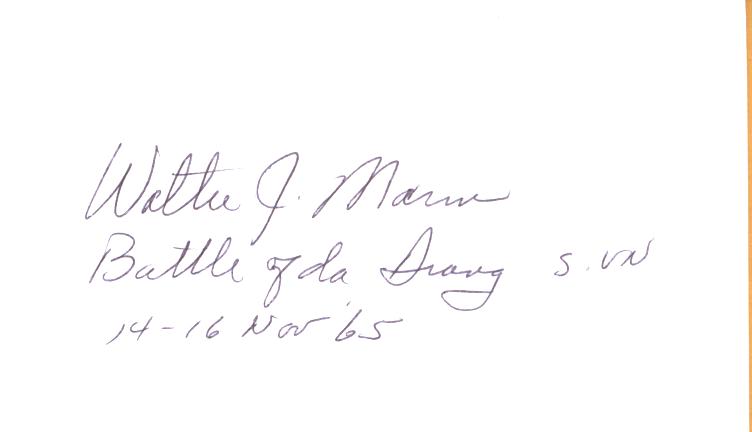 Walter J. Marm
Battle of Ia Drang S. VN
14-16 Nov '65